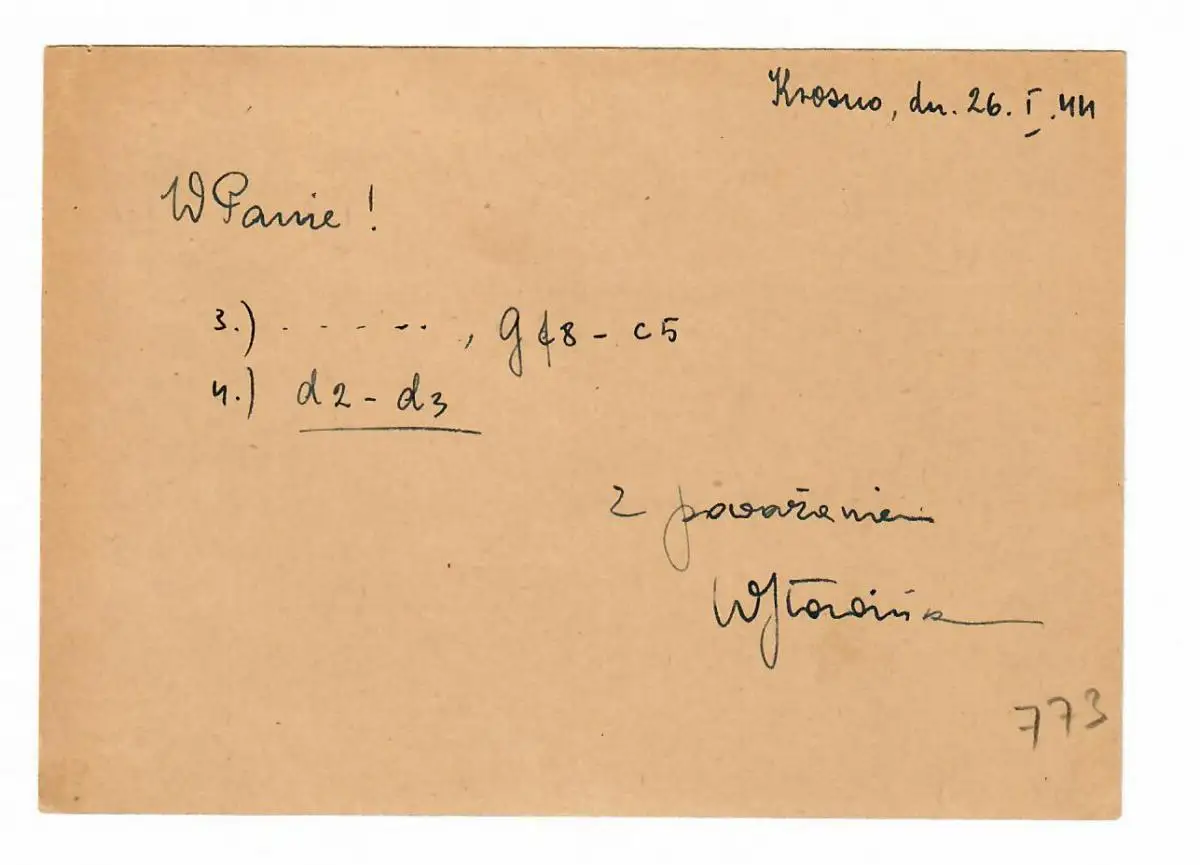 Krosno, dn. 26. I. 44
WPanie!
3.) . - - - .. , Gf8 - c5
4.) d2 - d3
Z poważaniem
773